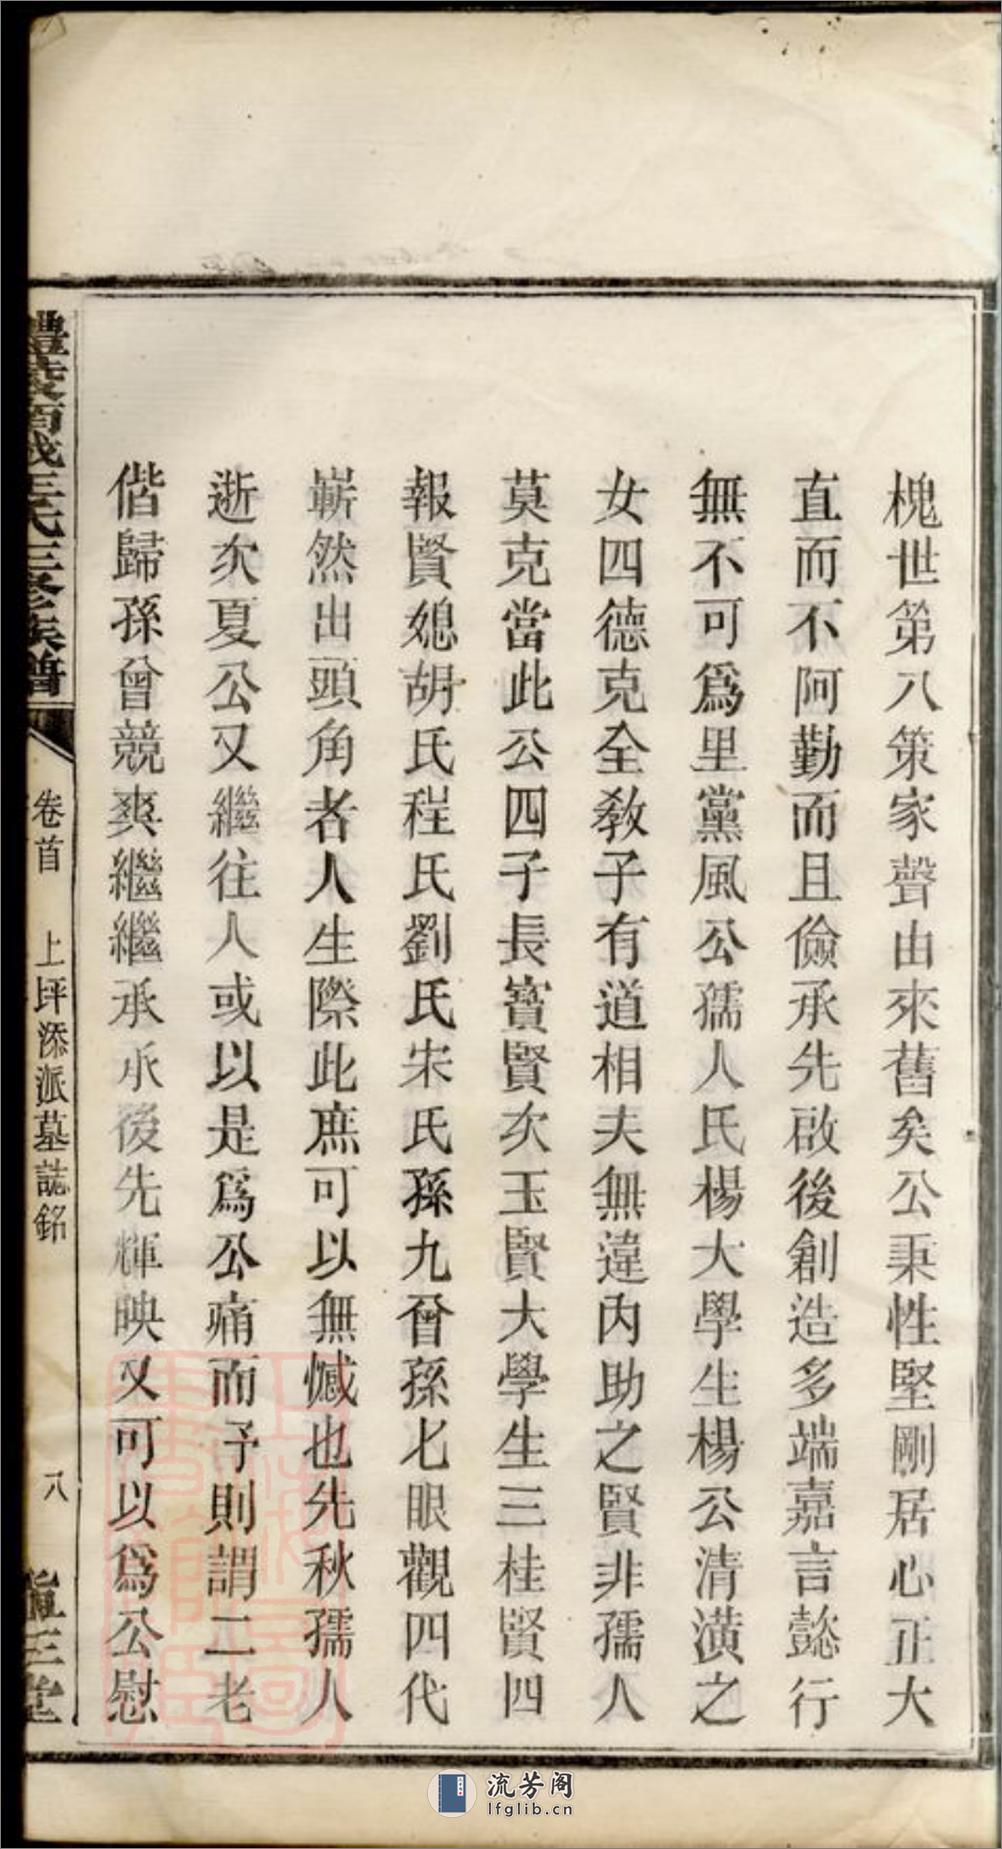 槐世第八策家聲由來舊矣公秉性堅剛居心正大
直而不阿勤而且儉承先啟後創造多端嘉言懿行
無不可爲里黨風公孺人氏楊大學生楊公清潢之
女四德克全敎子有道相夫無違內助之賢非孺人
莫克當此公四子長寶賢次玉賢大學生三桂賢四
報賢媳胡氏程氏劉氏宋氏孫九曾孫七眼觀四代
嶄然出頭角者人生際此庶可以無憾也先秋孺人
逝次夏公又繼往人或以是爲公痛而予則謂二老
偕歸孫曾競爽繼繼承承後先輝映又可以爲公慰
醴陵西城王氏三修族譜
卷首
上坪添派墓誌銘
八
三堂
流芳阁
lfglib.cn